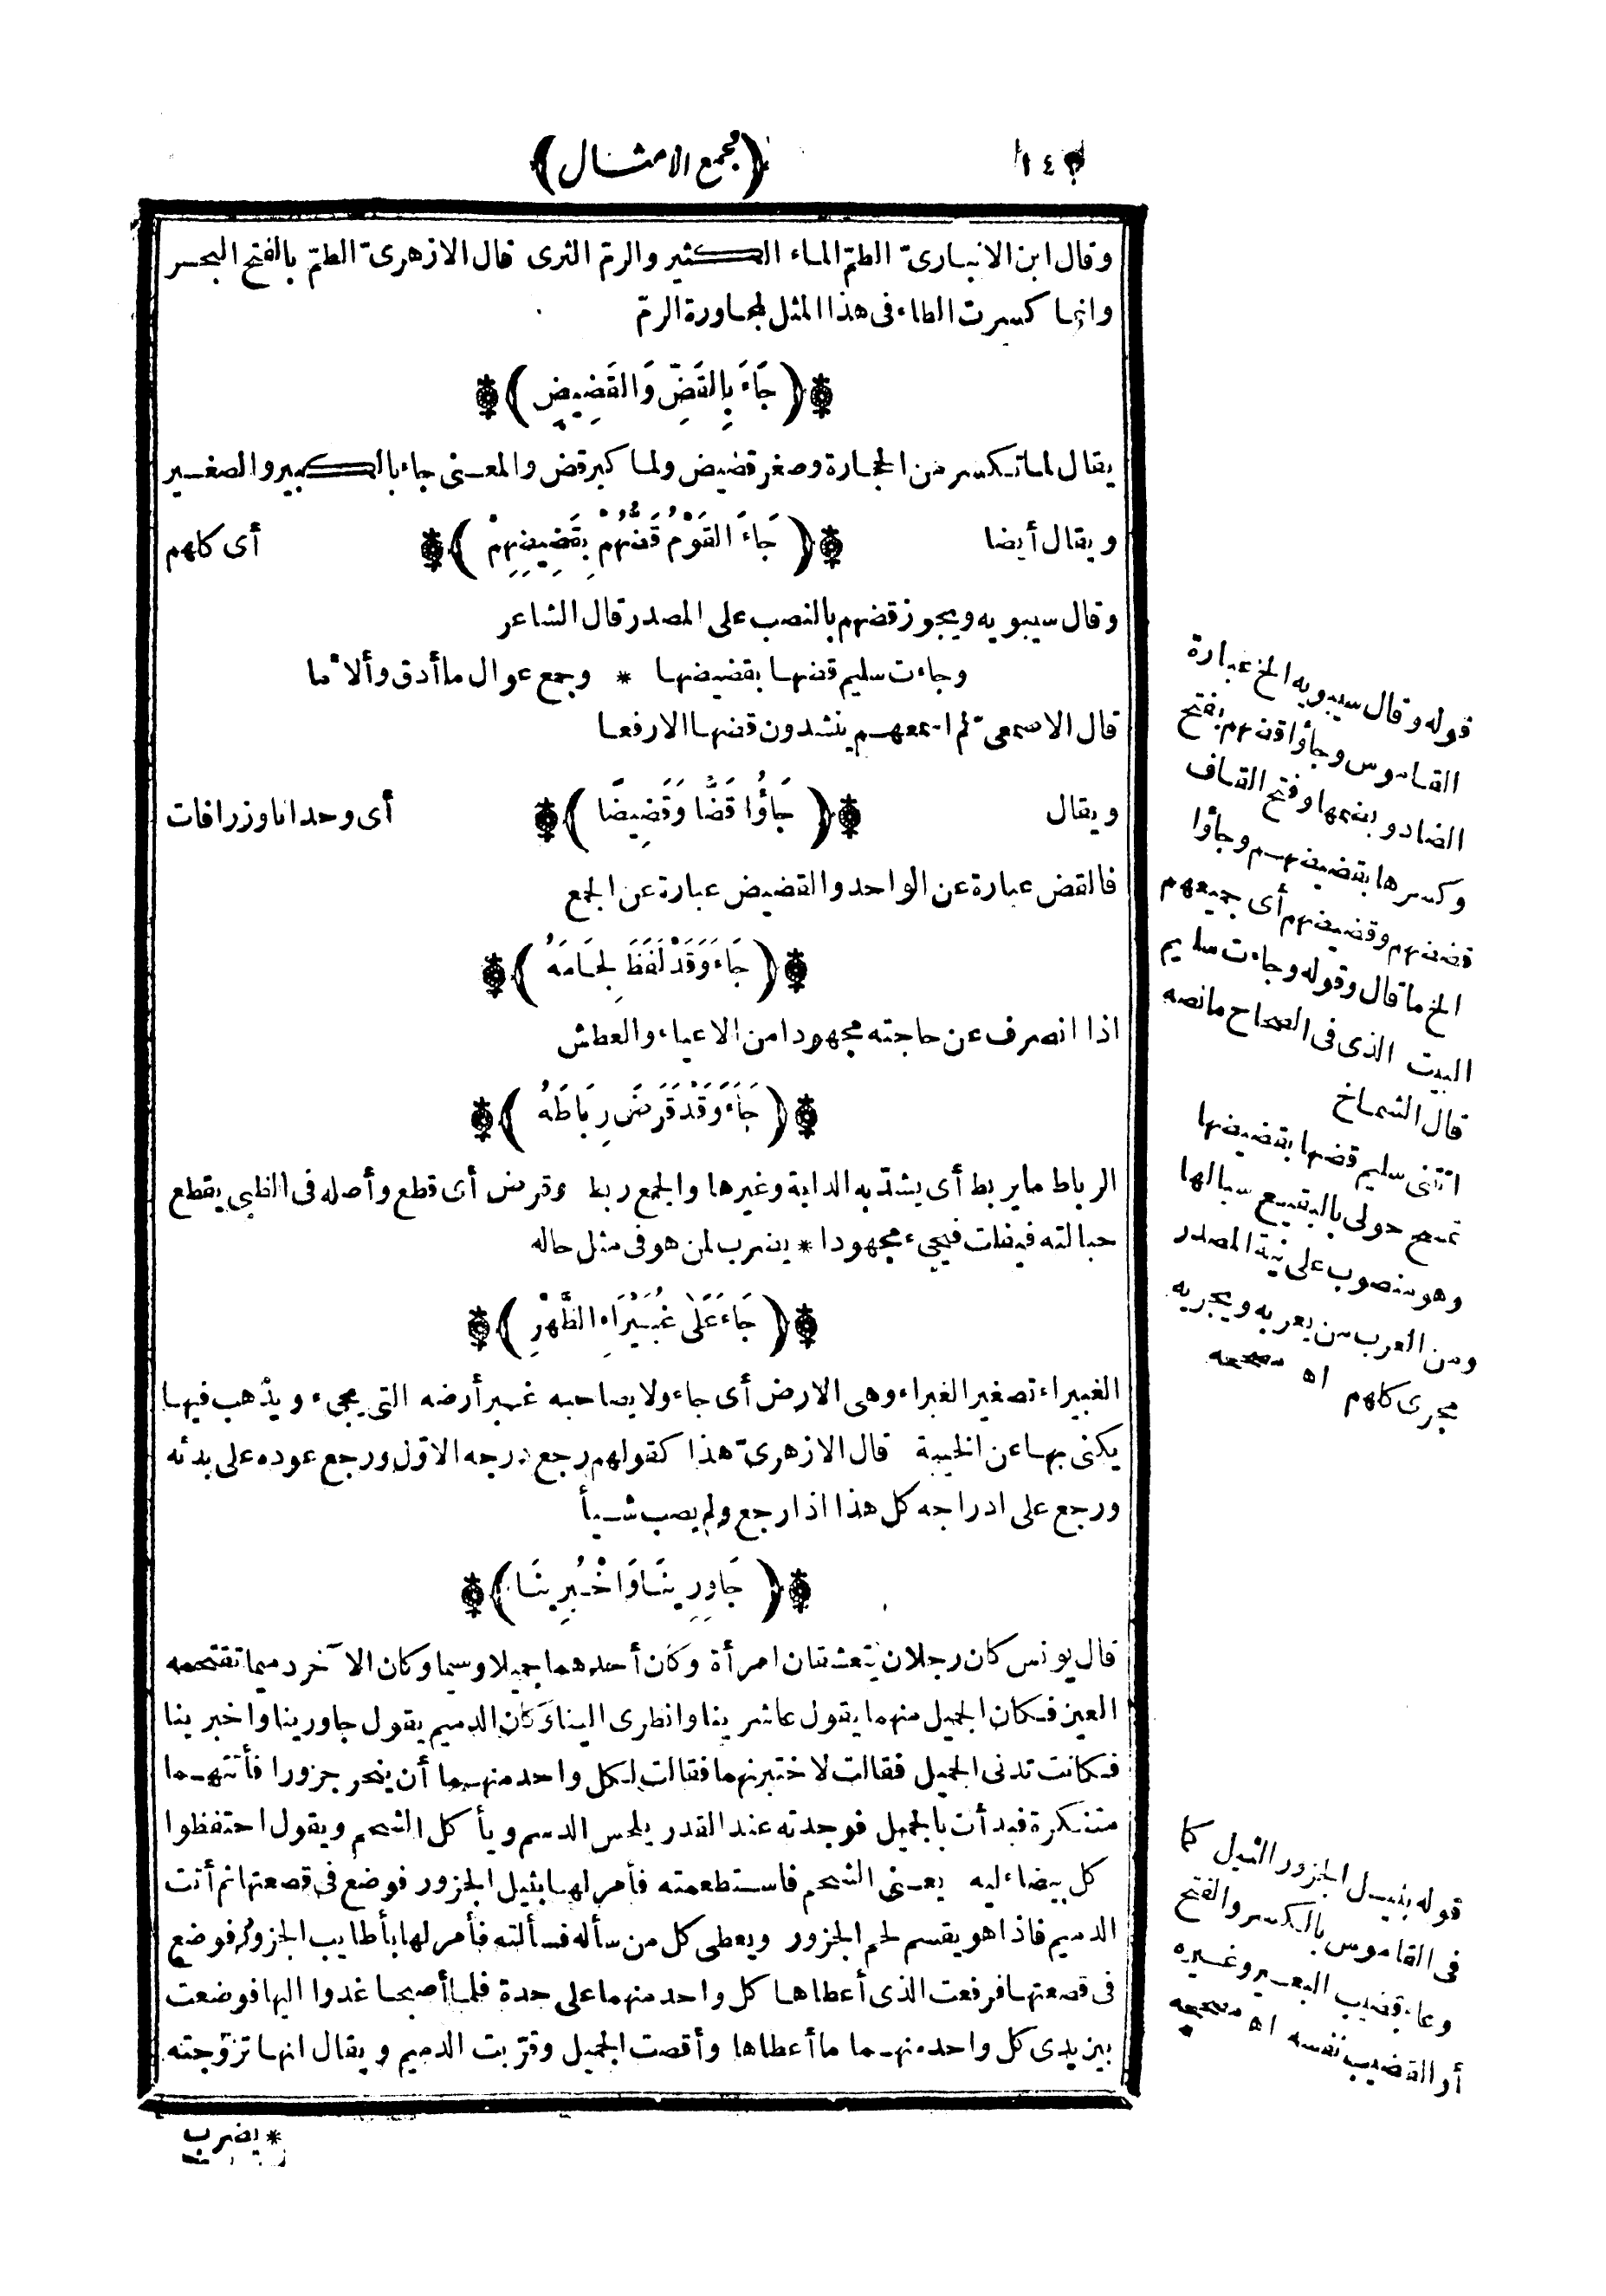 ١٤٢
﴿مجمع الامثال﴾
وقال ابن الانبارىّ الطمّ الماء الكثير والرمّ الثرى قال الازهرىّ الطمّ بالفتح البحر
وانما كسرت الطاء فى هذا المثل لمجاورة الرمّ
﴿جَاءَ بِالقَضِّ وَالقَضِيضِ﴾
يقال لما تكسر من الحجارة وصغر قضيض ولما كبر قض والمعنى جاء بالكبير والصغير
ويقال أيضا ﴿جَاءَ القَوْمُ قَضُّهُمْ بِقَضِيضِهِمْ﴾ أى كلهم
وقال سيبويه ويجوز قضهم بالنصب على المصدر قال الشاعر
وجاءت سليم قضها بقضيضها * وجمع عوال ما أدق وألأما
قال الاصمعىّ لم اسمعهم ينشدون قضها الا رفعا
ويقال ﴿جَاؤُا قَضًّا وَقَضِيضًا﴾ أى وحدانا وزرافات
فالقض عبارة عن الواحد والقضيض عبارة عن الجمع
﴿جَاءَ وَقَدْ لَفَظَ لِجَامَهُ﴾
اذا انصرف عن حاجته مجهودا من الاعياء والعطش
﴿جَاءَ وَقَدْ قَرَضَ رِبَاطَهُ﴾
الرباط ما يربط أى يشدّ به الدابة وغيرها والجمع ربط وقرض أى قطع وأصله فى الظبى يقطع
حبالته فيفلت فيجىء مجهودا * يضرب لمن هو فى مثل حاله
﴿جَاءَ عَلَى غُبَيْرَاءِ الظَّهْرِ﴾
الغبيراء تصغير الغبراء وهى الارض أى جاء ولا يصاحبه غير أرضه التى يجىء ويذهب فيها
يكنى بها عن الخيبة قال الازهرىّ هذا كقولهم رجع درجه الاوّل ورجع عوده على بدئه
ورجع على ادراجه كل هذا اذا رجع ولم يصب شيأ
﴿جَاوِرِينَا وَاخْبُرِينَا﴾
قال يونس كان رجلان يتعشقان امرأة وكان أحدهما جميلا وسيما وكان الآخر دميما تقتحمه
العين فكان الجميل منهما يقول عاشرينا وانظرى الينا وكان الدميم يقول جاورينا واخبرينا
فكانت تدنى الجميل فقالت لاختبرنهما فقالت لكل واحد منهما أن ينحر جزورا فأتتهما
متنكرة فبدأت بالجميل فوجدته عند القدر يلحس الدسم ويأكل الشحم ويقول احتفظوا
كل بيضاء ليه يعنى الشحم فاستطعمته فأمر لها بثيل الجزور فوضع فى قصعتها ثم أتت
الدميم فاذا هو يقسم لحم الجزور ويعطى كل من سأله فسألته فأمر لها بأطايب الجزور فوضع
فى قصعتها فرفعت الذى أعطاها كل واحد منهما على حدة فلما أصبحا غدوا اليها فوضعت
بين يدى كل واحد منهما ما أعطاها وأقصت الجميل وقرّبت الدميم ويقال انها تزوّجته
* يضرب
قوله وقال سيبويه الخ عبارة
القاموس وجاؤا قضهم بفتح
الضاد وبضمها وفتح القاف
وكسرها بقضيضهم وجاؤا
قضضهم وقضيضهم أى جميعهم
الخ ما قال وقوله وجاءت سليم
البيت الذى فى الصحاح ما نصه
قال الشماخ
اتتنى سليم قضها بقضيضها
تمسح حولى بالبقيع سبالها
وهو منصوب على نية المصدر
ومن العرب من يعربه ويجريه
مجرى كلهم اه مصححه
قوله بثيل الجزور الثيل كما
فى القاموس بالكسر والفتح
وعاء قضيب البعير وغيره
أو القضيب نفسه اه مصححه